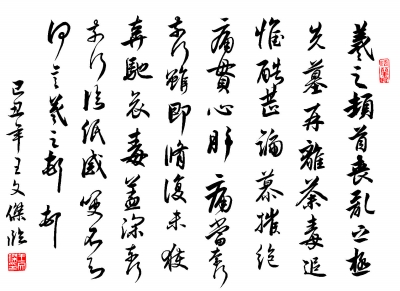 羲之頓首喪亂之極
先墓再離荼毒追
惟酷甚號慕摧絕
痛貫心肝痛當奈何
奈何雖即脩復未獲
奔馳哀毒益深奈何
奈何臨紙感哽不知
何言羲之頓首頓首
己丑年王文傑臨